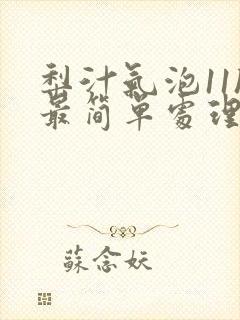 梨汁氣泡11
最简單處理
蘇念妖